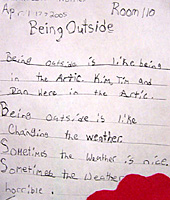 April 17, 2005 Room 110
Being Outside
Being outside is like being
in the Artic. Kim, Tim and
Dan were in the Artic.
Being outside is like
Changing the weather.
Sometimes the Weather is nice.
Sometimes the Weather
horrible.